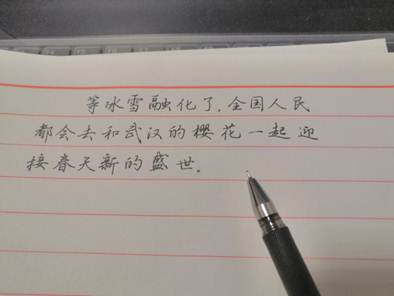 等冰雪融化了,全国人民
都会去和武汉的樱花一起迎
接春天新的盛世。